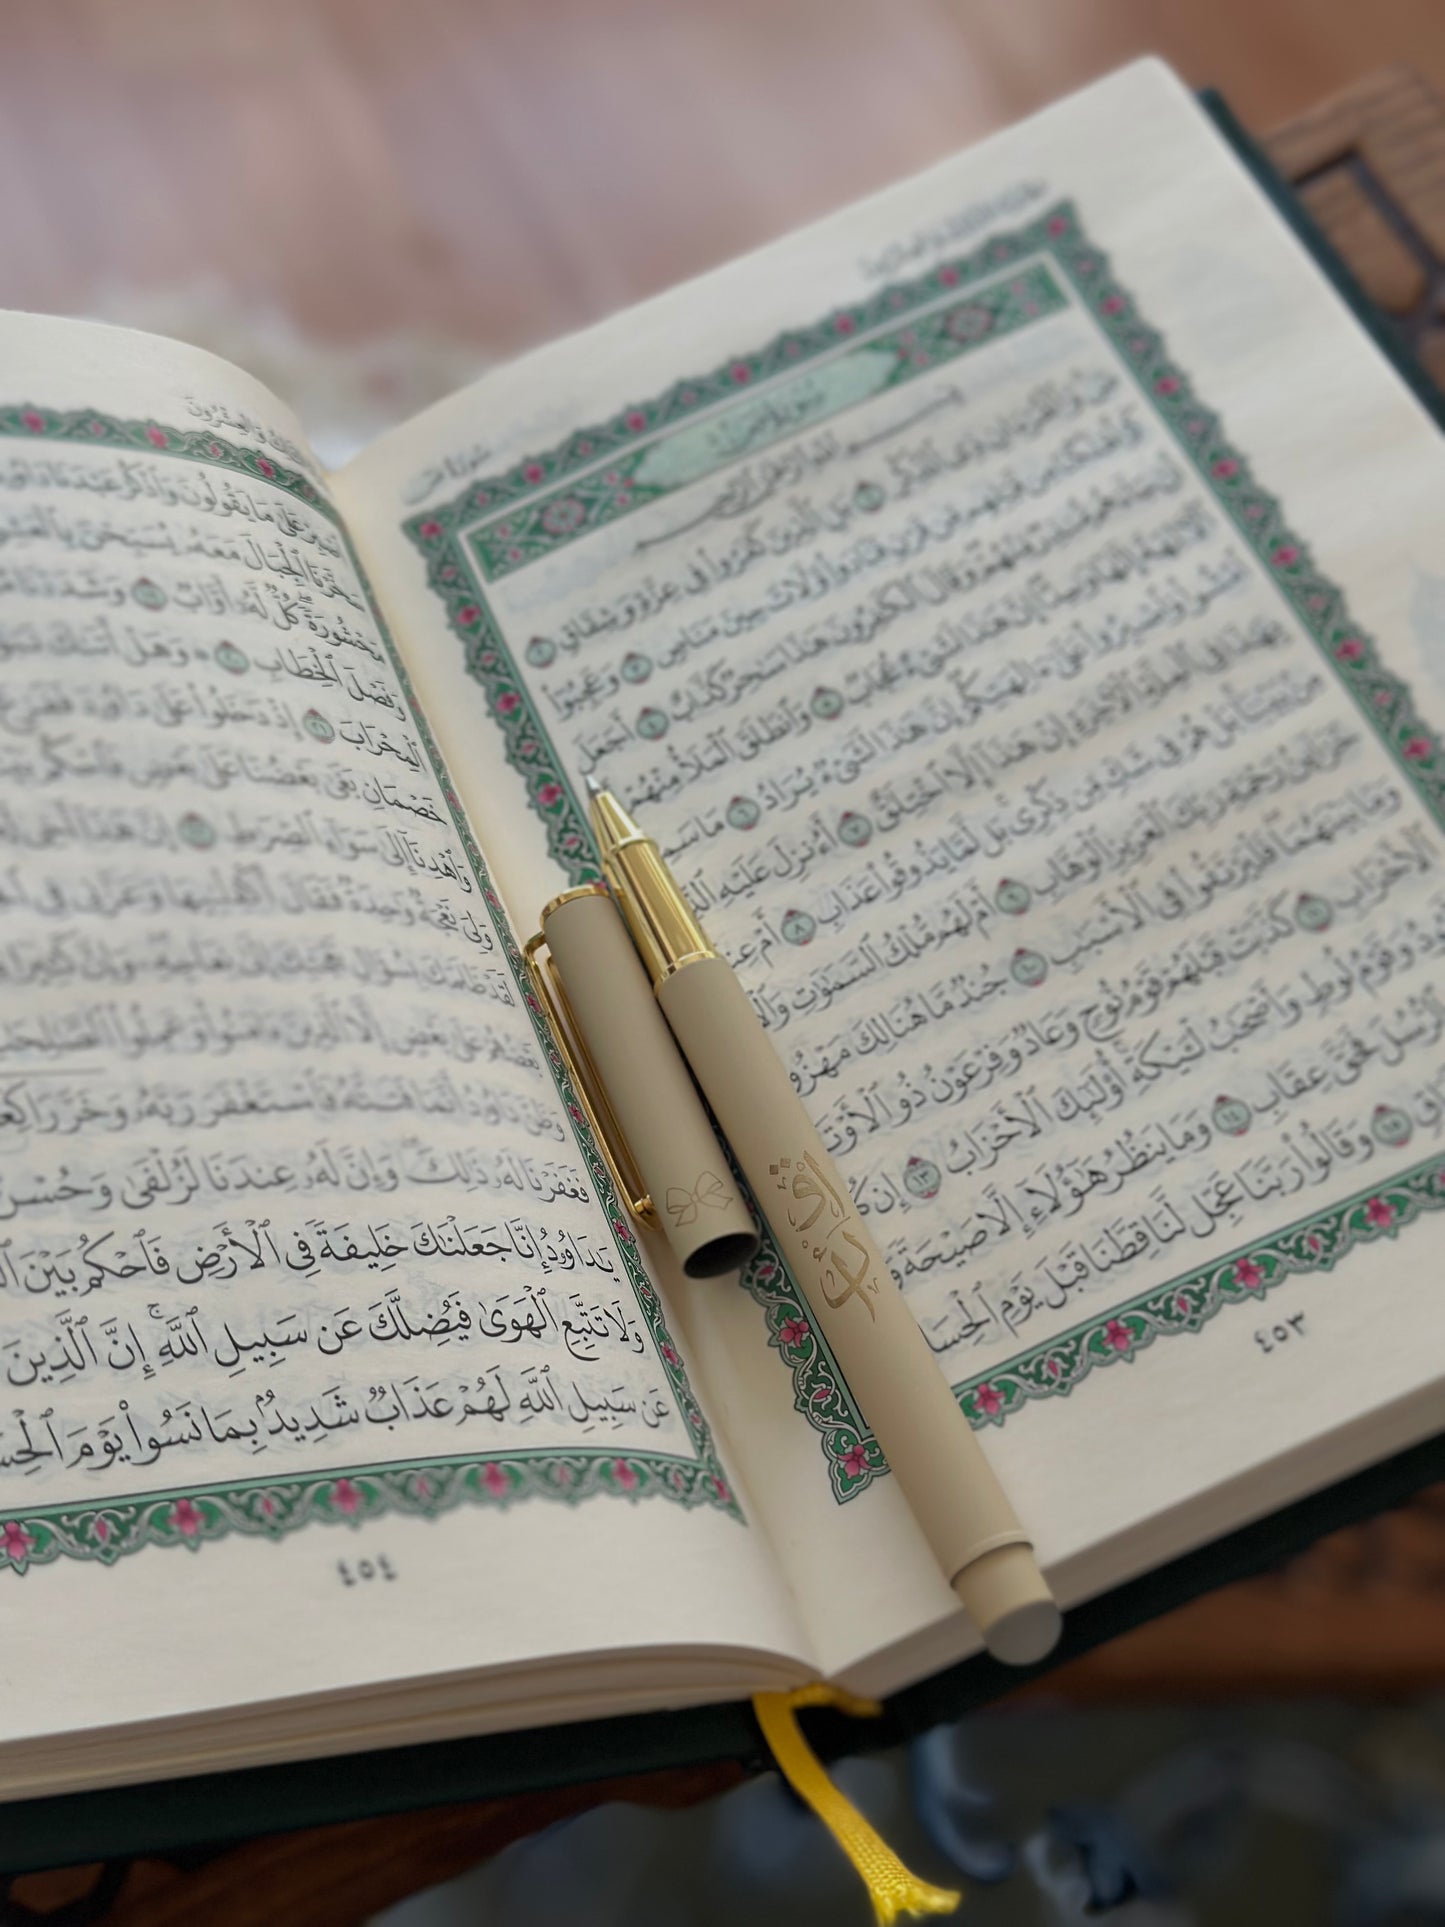 سُورَةُ صٓ
سُورَةُ صٓ
بِسْمِ ٱللَّهِ ٱلرَّحْمَٰنِ ٱلرَّحِيمِ
صٓ وَٱلْقُرْءَانِ ذِى ٱلذِّكْرِ ١ بَلِ ٱلَّذِينَ كَفَرُوا۟ فِى عِزَّةٍ وَشِقَاقٍ ٢
كَمْ أَهْلَكْنَا مِن قَبْلِهِم مِّن قَرْنٍ فَنَادَوا۟ وَّلَاتَ حِينَ مَنَاصٍ ٣ وَعَجِبُوٓا۟
أَن جَآءَهُم مُّنذِرٌ مِّنْهُمْ وَقَالَ ٱلْكَٰفِرُونَ هَٰذَا سَٰحِرٌ كَذَّابٌ ٤ أَجَعَلَ
ٱلْءَالِهَةَ إِلَٰهًا وَٰحِدًا إِنَّ هَٰذَا لَشَىْءٌ عُجَابٌ ٥ وَٱنطَلَقَ ٱلْمَلَأُ مِنْهُمْ
ٱمْشُوا۟ وَٱصْبِرُوا۟ عَلَىٰٓ ءَالِهَتِكُمْ إِنَّ هَٰذَا لَشَىْءٌ يُرَادُ ٦ مَا
بِهَٰذَا فِى ٱلْمِلَّةِ ٱلْءَاخِرَةِ إِنْ هَٰذَآ إِلَّا ٱخْتِلَٰقٌ ٧ أَءُنزِلَ عَلَيْهِ
مِنۢ بَيْنِنَا بَلْ هُمْ فِى شَكٍّ مِّن ذِكْرِى بَل لَّمَّا يَذُوقُوا۟ عَذَابِ ٨ أَمْ
خَزَآئِنُ رَحْمَةِ رَبِّكَ ٱلْعَزِيزِ ٱلْوَهَّابِ ٩ أَمْ لَهُم مُّلْكُ ٱلسَّمَٰوَٰتِ
وَمَا بَيْنَهُمَا فَلْيَرْتَقُوا۟ فِى ٱلْأَسْبَٰبِ ١٠ جُندٌ مَّا هُنَالِكَ
ٱلْأَحْزَابِ ١١ كَذَّبَتْ قَبْلَهُمْ قَوْمُ نُوحٍ وَعَادٌ وَفِرْعَوْنُ ذُو
وَقَوْمُ لُوطٍ وَأَصْحَٰبُ لْـَٔيْكَةِ أُو۟لَٰٓئِكَ ٱلْأَحْزَابُ ١٣ إِن
ٱلرُّسُلَ فَحَقَّ عِقَابِ ١٤ وَمَا يَنظُرُ هَٰٓؤُلَآءِ إِلَّا صَيْحَةً
١٥ وَقَالُوا۟ رَبَّنَا عَجِّل لَّنَا قِطَّنَا قَبْلَ يَوْمِ
٤٥٣
وَٱلْعِشْرُونَ
ٱصْبِرْ عَلَىٰ مَا يَقُولُونَ وَٱذْكُرْ عَبْدَنَا
سَخَّرْنَا ٱلْجِبَالَ مَعَهُۥ يُسَبِّحْنَ
مَحْشُورَةً كُلٌّ لَّهُۥٓ أَوَّابٌ ١٩ وَشَدَدْنَا
وَفَصْلَ ٱلْخِطَابِ ٢٠ وَهَلْ أَتَىٰكَ
ٱلْمِحْرَابَ ٢١ إِذْ دَخَلُوا۟ عَلَىٰ دَاوُۥدَ فَفَزِعَ
خَصْمَانِ بَغَىٰ بَعْضُنَا عَلَىٰ بَعْضٍ
وَٱهْدِنَآ إِلَىٰ سَوَآءِ ٱلصِّرَٰطِ ٢٢ إِنَّ هَٰذَآ أَخِى
وَلِىَ نَعْجَةٌ وَٰحِدَةٌ فَقَالَ أَكْفِلْنِيهَا وَعَزَّنِى فِى
لَقَدْ ظَلَمَكَ بِسُؤَالِ نَعْجَتِكَ إِلَىٰ نِعَاجِهِۦ وَإِنَّ كَثِيرًا
بَعْضُهُمْ عَلَىٰ بَعْضٍ إِلَّا ٱلَّذِينَ ءَامَنُوا۟ وَعَمِلُوا۟
وَظَنَّ دَاوُۥدُ أَنَّمَا فَتَنَّٰهُ فَٱسْتَغْفَرَ رَبَّهُۥ وَخَرَّ رَاكِعًا
فَغَفَرْنَا لَهُۥ ذَٰلِكَ وَإِنَّ لَهُۥ عِندَنَا لَزُلْفَىٰ وَحُسْنَ
يَٰدَاوُۥدُ إِنَّا جَعَلْنَٰكَ خَلِيفَةً فِى ٱلْأَرْضِ فَٱحْكُم بَيْنَ
وَلَا تَتَّبِعِ ٱلْهَوَىٰ فَيُضِلَّكَ عَن سَبِيلِ ٱللَّهِ إِنَّ ٱلَّذِينَ
عَن سَبِيلِ ٱللَّهِ لَهُمْ عَذَابٌ شَدِيدٌۢ بِمَا نَسُوا۟ يَوْمَ
٤٥٤
اقرأ